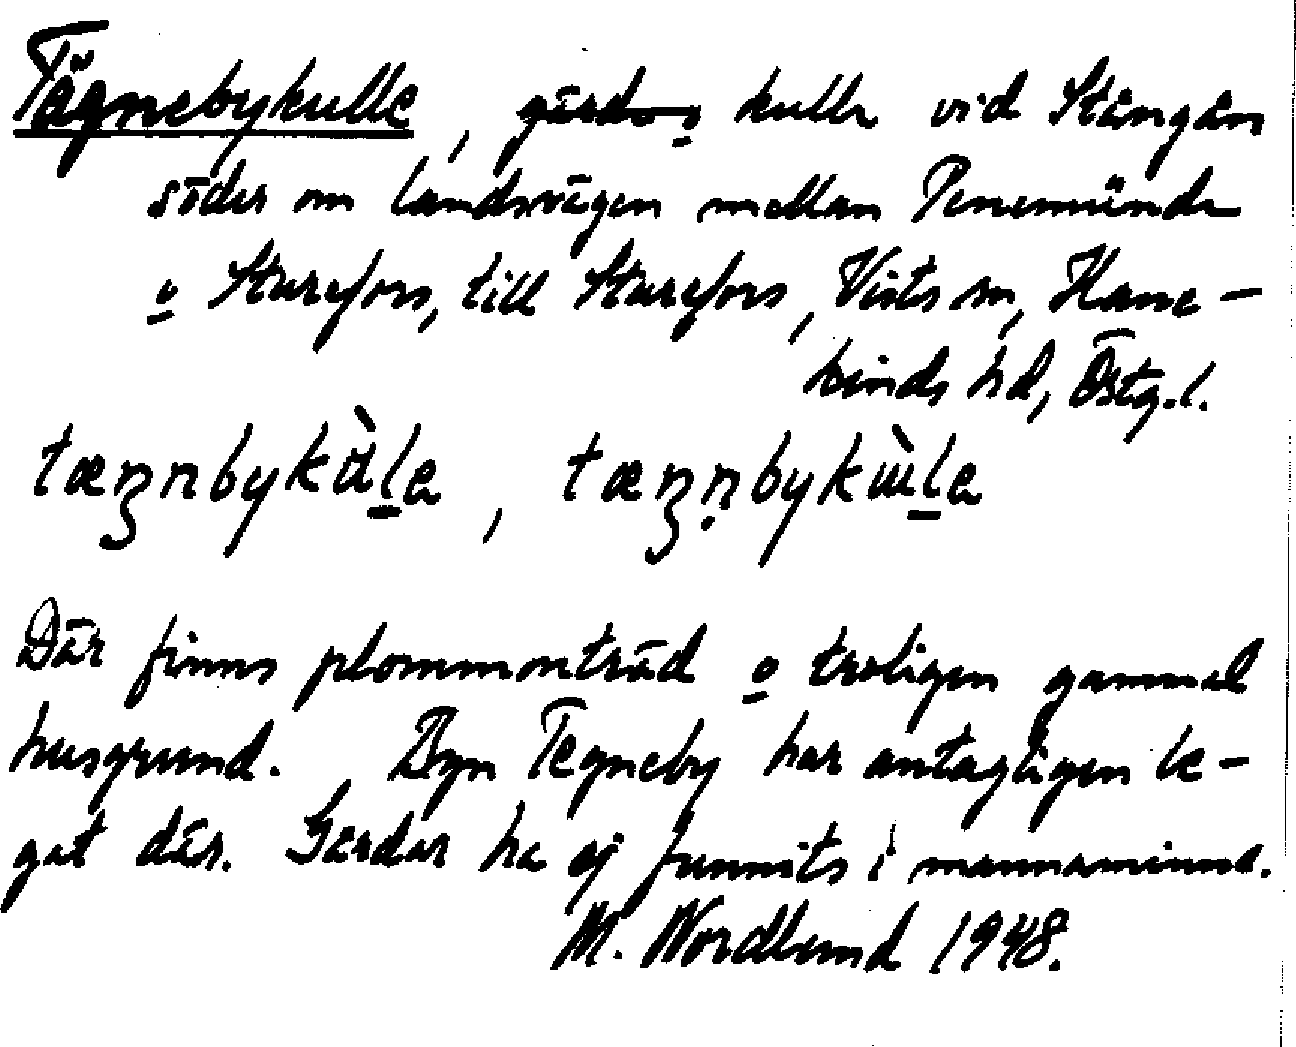 Tägnebykulle, gård o kulle vid Stångån
söder om landsvägen mellan Penemünde
o Sturefors, till Sturefors, Vists sn, Hane-
kinds hd, Östg.l.
tæŋnbykùle, tæŋṇbykùle
Där finns plommonträd o troligen gammal
husgrund. Byn Tegneby har antagligen le-
gat där. Gårdar ha ej funnits i mannaminne.
M. Nordlund 1948.